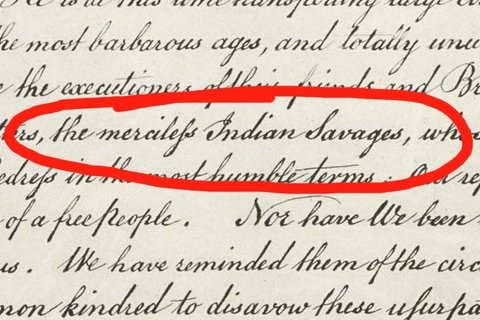 this time transporting large
he most barbarous ages, and totally unw
e the executioners of their friends and Br
ters, the mercileſs Indian Savages, whos
edreſs in the most humble terms : Our rep
of a free people. Nor have We been
us. We have reminded them of the circ
mon kindred to disavow these uſurpa